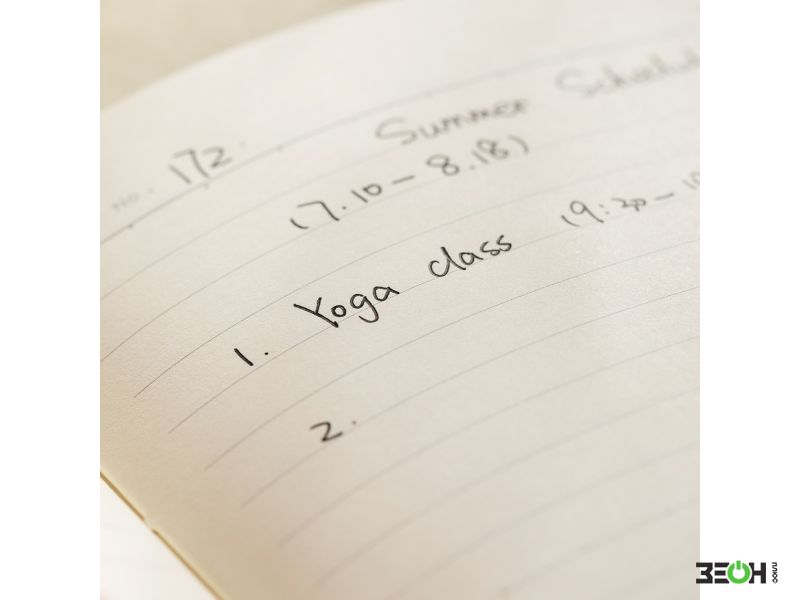 No. 172
Summer Schedul
(7.10 - 8.18)
1. Yoga class (9:30 -
2.
ЗЕОН